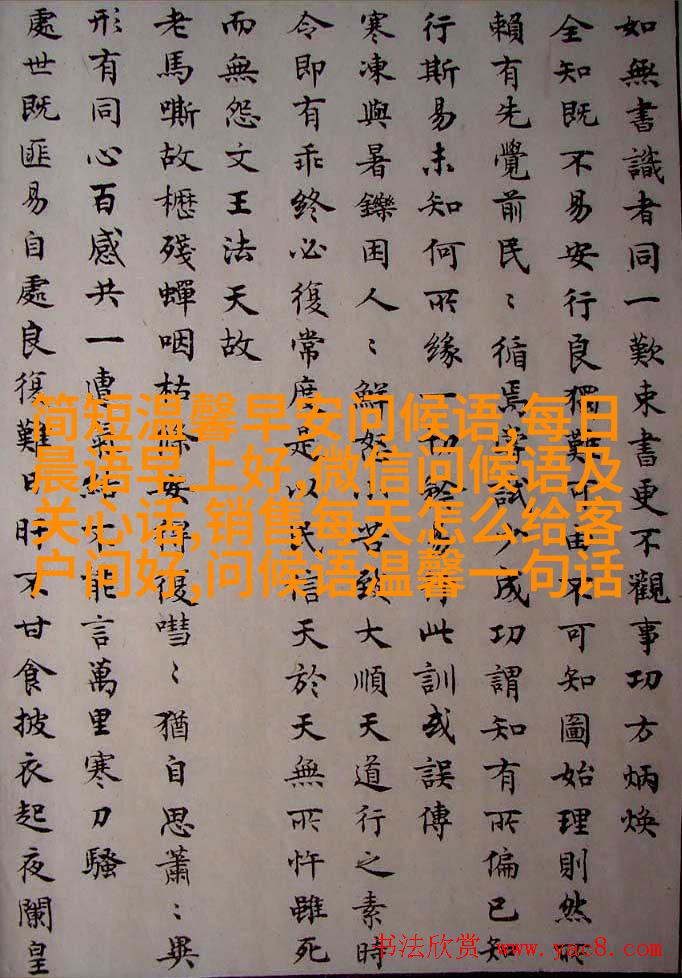 如無書識者同一歎束書更不觀事功方炳煥
全知既不易安行良獨難可由不可知圖始理則然所
賴有先覺前民〻循焉嘗試少成功謂知有所偏已知
行斯易未知何所緣一切易此訓或誤傳
寒凍與暑鑠困人〻鮮怒小苦致大順天道行之素時
令即有乖終必復常度是以民信天於天無所忤雖死
而無怨文王法天故
老馬嘶故櫪殘蟬咽枯條安得復嘒〻猶自思蕭〻異
形有同心百感共一遭不能言萬里寒刀騷
處世既匪易自處良復難日旰不甘食披衣起夜闌皇
简短温馨早安问候语,每日
晨语早上好,微信问候语及
关心话,销售每天怎么给客
户问好,问候语温馨一句话
书法欣赏 www.yac8.com